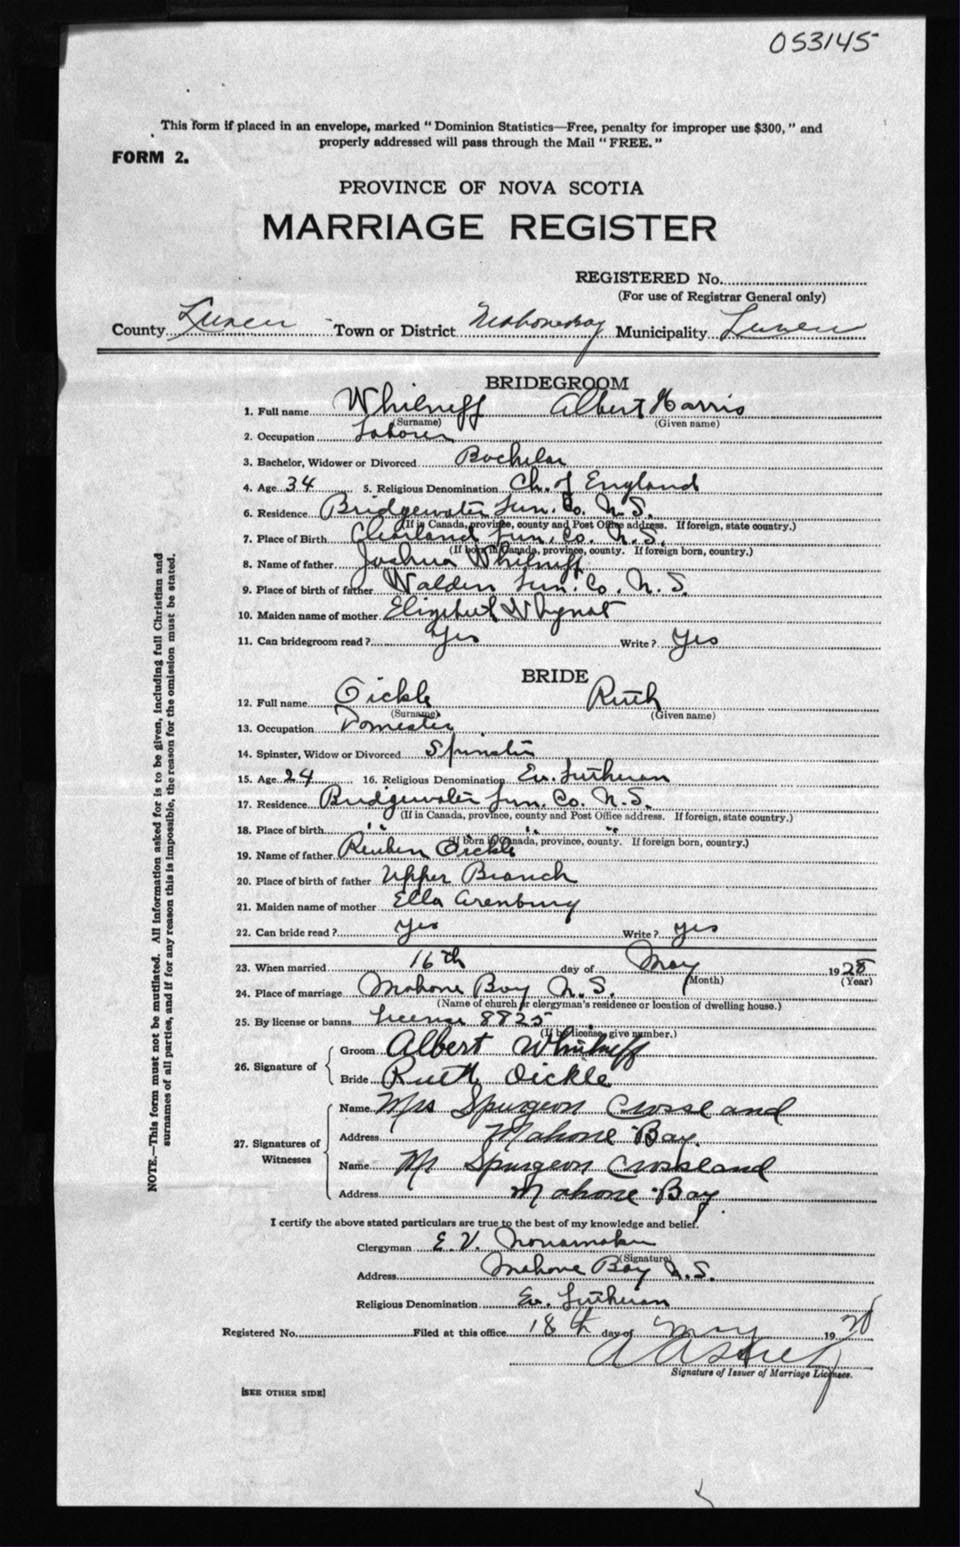 053145
This form if placed in an envelope, marked "Dominion Statistics—Free, penalty for improper use $300," and
properly addressed will pass through the Mail "FREE."
FORM 2.
PROVINCE OF NOVA SCOTIA
MARRIAGE REGISTER
REGISTERED No.
(For use of Registrar General only)
County Lunen Town or District Mahone Bay Municipality Lunen
BRIDEGROOM
1. Full name Whilneff Albert Harris
(Surname) (Given name)
2. Occupation Laborer
3. Bachelor, Widower or Divorced Bachelor
4. Age 34 5. Religious Denomination Ch. of England
6. Residence Bridgewater Lun. Co. N.S.
(If in Canada, province, county and Post Office address. If foreign, state country.)
7. Place of Birth Clearland Lun. Co. N.S.
(If born in Canada, province, county. If foreign born, country.)
8. Name of father Joshua Whilneff
9. Place of birth of father Walden Lun. Co. N.S.
10. Maiden name of mother Elizabeth Whynot
11. Can bridegroom read? Yes Write? Yes
BRIDE
12. Full name Oickle Ruth
(Surname) (Given name)
13. Occupation Domestic
14. Spinster, Widow or Divorced Spinster
15. Age 24 16. Religious Denomination Ev. Lutheran
17. Residence Bridgewater Lun. Co. N.S.
(If in Canada, province, county and Post Office address. If foreign, state country.)
18. Place of birth " " "
(If born in Canada, province, county. If foreign born, country.)
19. Name of father Reuben Oickle
20. Place of birth of father Upper Branch
21. Maiden name of mother Ella Arenburg
22. Can bride read? Yes Write? Yes
23. When married 16th day of May 1928
(Month) (Year)
24. Place of marriage Mahone Bay N.S.
(Name of church or clergyman's residence or location of dwelling house.)
25. By license or banns License 8825
(If by license, give number.)
26. Signature of Groom Albert Whilneff
Bride Ruth Oickle
27. Signatures of Witnesses Name Mrs Spurgeon Crossland
Address Mahone Bay.
Name Mr Spurgeon Crossland
Address Mahone Bay
I certify the above stated particulars are true to the best of my knowledge and belief.
Clergyman E. V. Nonamaker
(Signature)
Address Mahone Bay N.S.
Religious Denomination Ev. Lutheran
Registered No. Filed at this office 18th day of May 19
Signature of Issuer of Marriage Licenses.
[SEE OTHER SIDE]
NOTE.—This form must not be mutilated. All information asked for is to be given, including full Christian and
surnames of all parties, and if for any reason this is impossible, the reason for the omission must be stated.